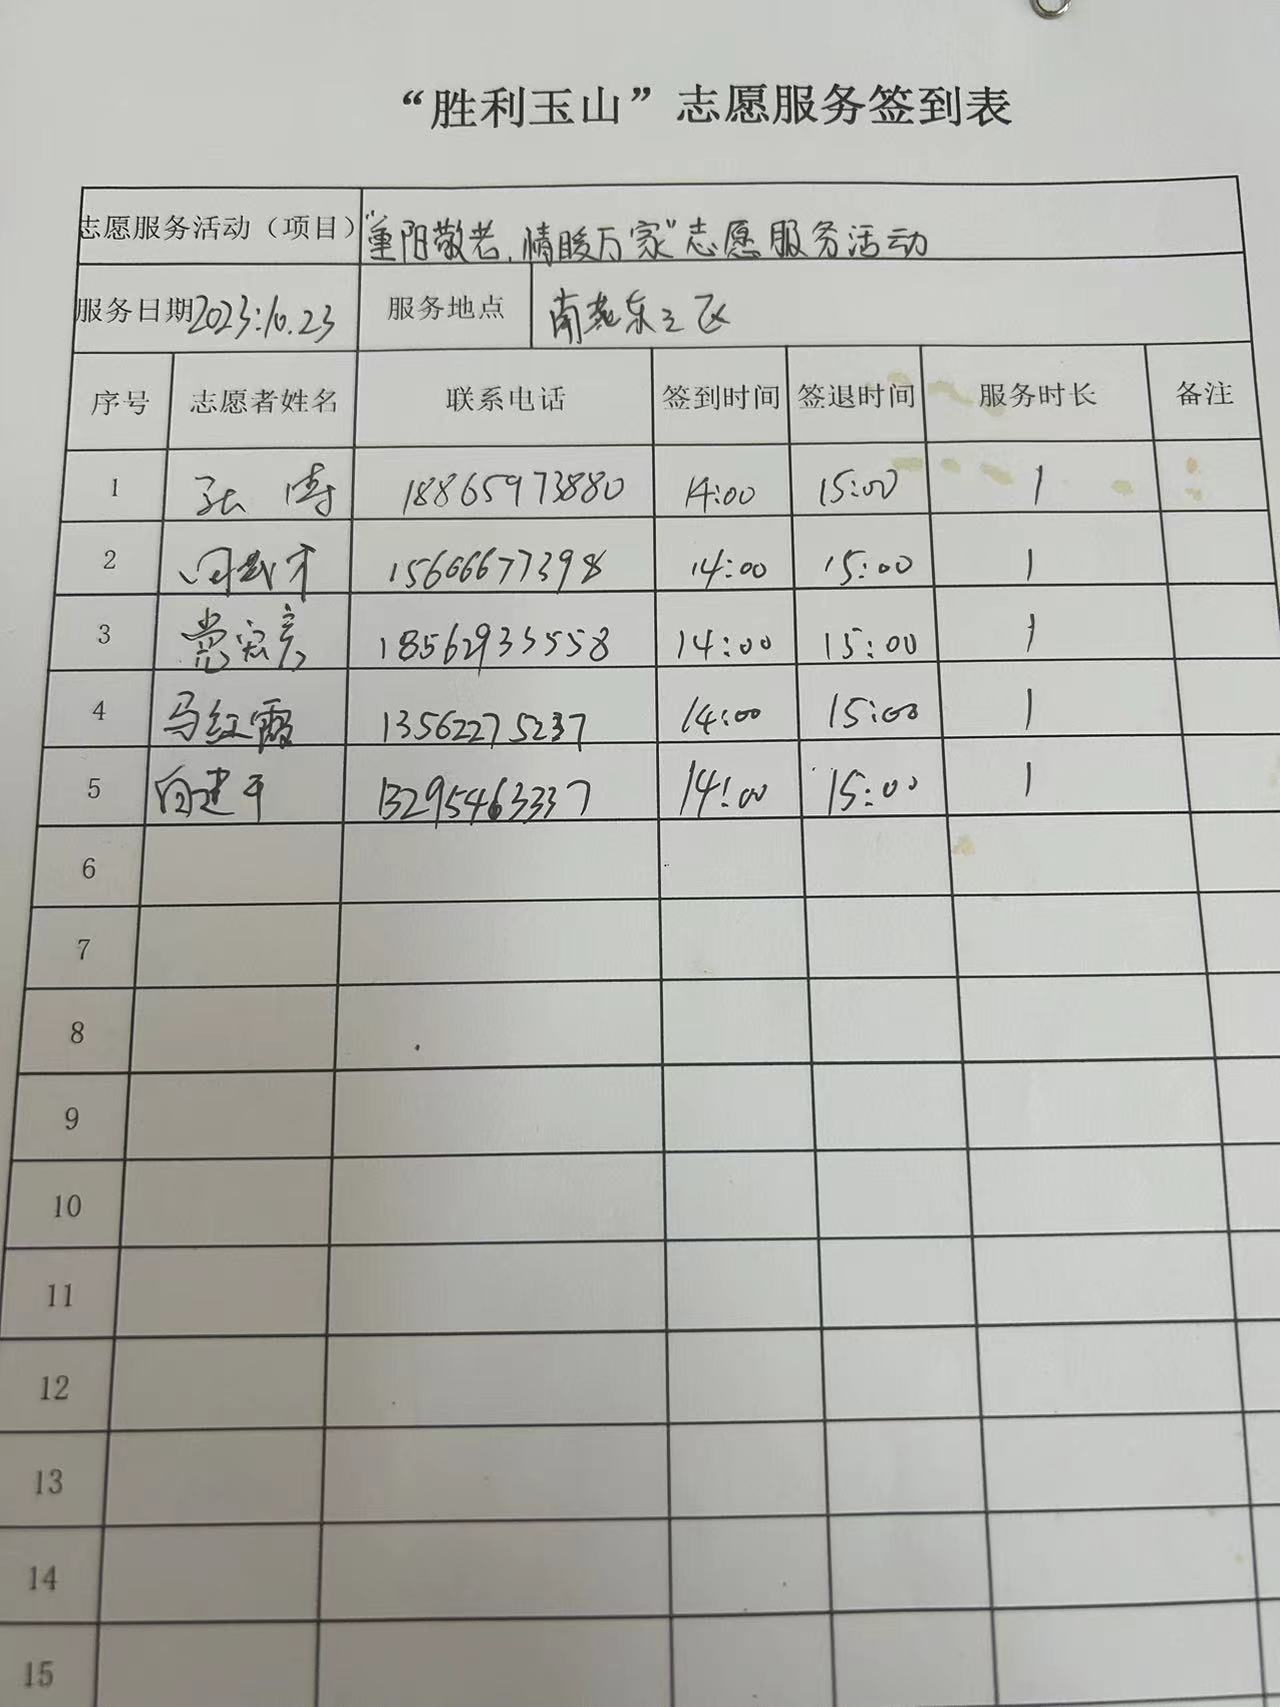 “胜利玉山”志愿服务签到表
志愿服务活动（项目） “重阳敬老,情暖万家”志愿服务活动
服务日期 2023.10.23 服务地点 南苑东三区
序号 志愿者姓名 联系电话 签到时间 签退时间 服务时长 备注
1 张涛 18865973880 14:00 15:00 1
2 15666677398 14:00 15:00 1
3 18562933558 14:00 15:00 1
4 马红霞 13562275237 14:00 15:00 1
5 向建平 13295463337 14:00 15:00 1
6
7
8
9
10
11
12
13
14
15